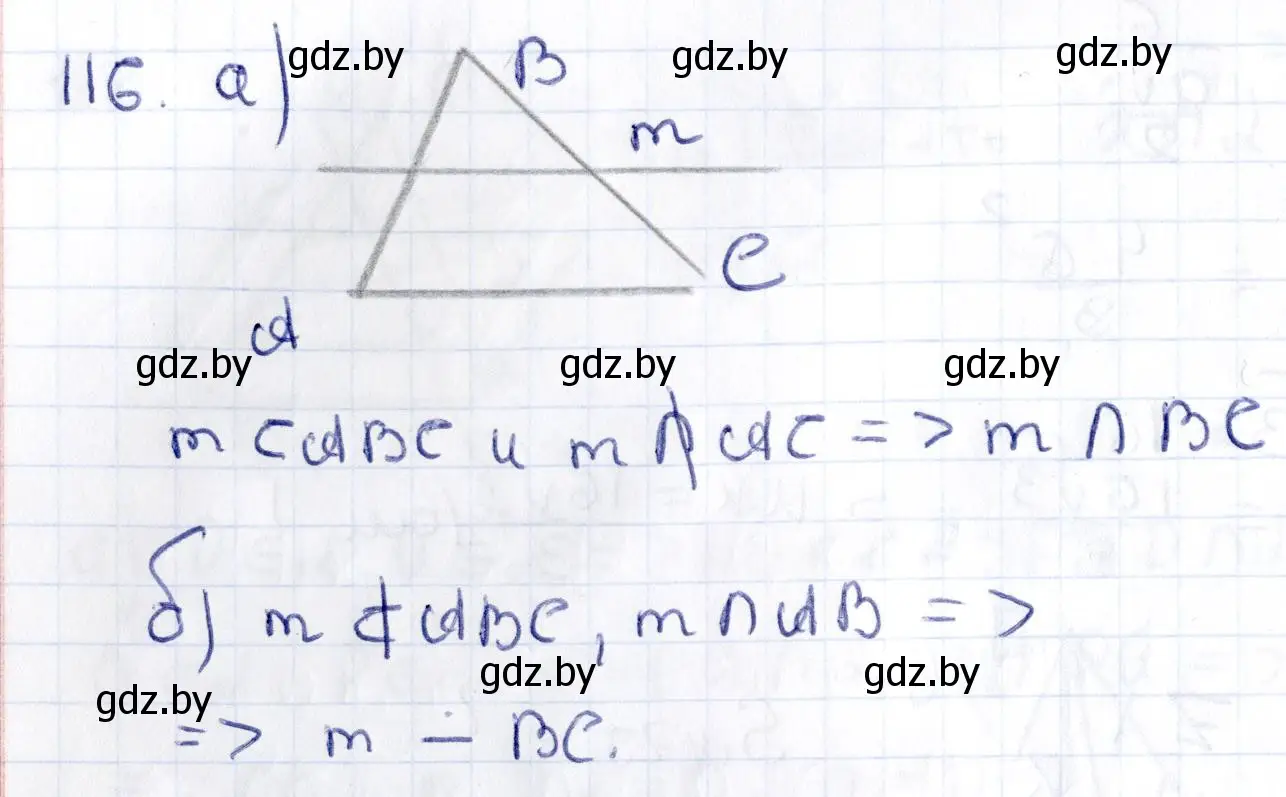 116. а) gdz.by gdz.by gdz.by
B
m
C
A
gdz.by gdz.by gdz.by
m ⊂ ABC и m ⋂̸ AC => m ∩ BC
б) m ⊄ ABC, m ∩ AB =>
gdz.by gdz.by gdz.by
=> m ∸ BC.